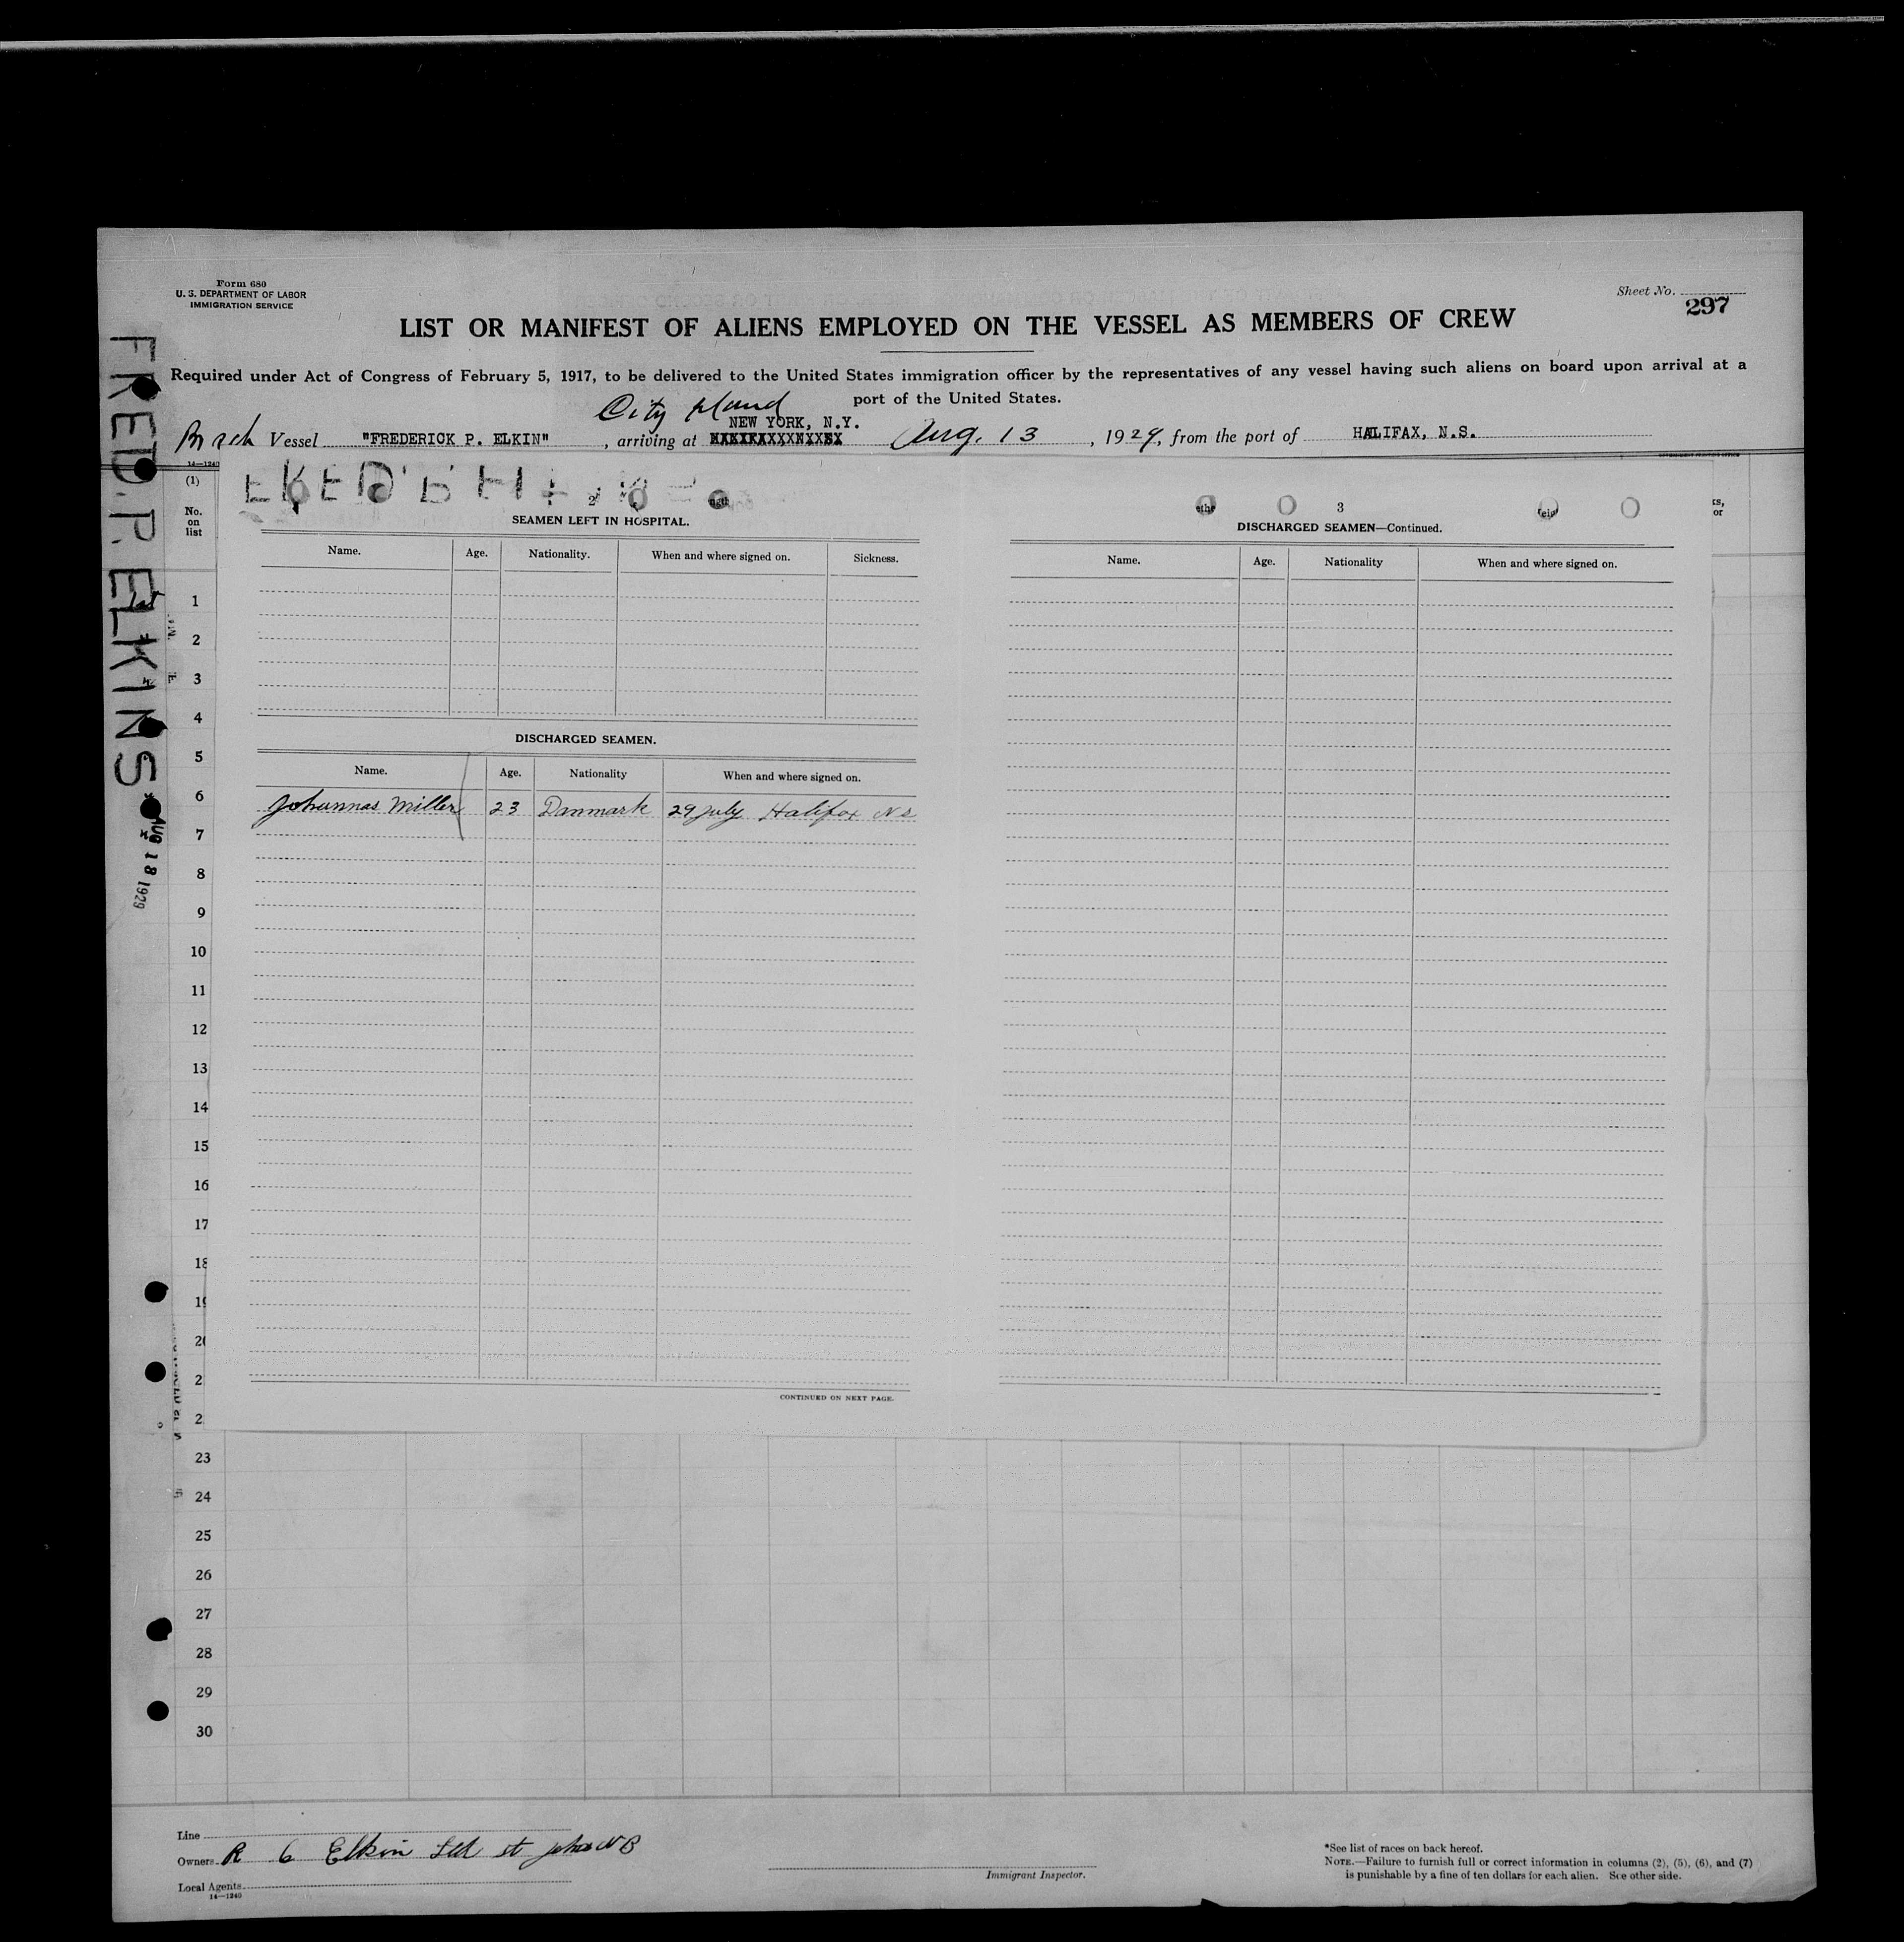 Form 680
U. S. DEPARTMENT OF LABOR
IMMIGRATION SERVICE
Sheet No.
297
LIST OR MANIFEST OF ALIENS EMPLOYED ON THE VESSEL AS MEMBERS OF CREW
Required under Act of Congress of February 5, 1917, to be delivered to the United States immigration officer by the representatives of any vessel having such aliens on board upon arrival at a
port of the United States.
City Island
NEW YORK, N.Y.
Vessel "FREDERICK P. ELKIN", arriving at Aug. 13, 1929, from the port of HALIFAX, N.S.
14—1240
FRED. P. ELKINS
AUG 18 1929
(1)
No.
on
list
2
SEAMEN LEFT IN HOSPITAL.
Name. Age. Nationality. When and where signed on. Sickness.
DISCHARGED SEAMEN.
Name. Age. Nationality When and where signed on.
Johannas Miller 23 Danmark 29 July Halifax N S
CONTINUED ON NEXT PAGE.
3
DISCHARGED SEAMEN—Continued.
Name. Age. Nationality When and where signed on.
1
2
3
4
5
6
7
8
9
10
11
12
13
14
15
16
17
18
19
20
2
2
23
24
25
26
27
28
29
30
Line
Owners R Elkin Ltd st John N B
Local Agents
14—1240
Immigrant Inspector.
*See list of races on back hereof.
NOTE.—Failure to furnish full or correct information in columns (2), (5), (6), and (7)
is punishable by a fine of ten dollars for each alien. See other side.